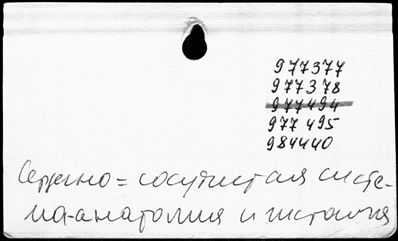 977377
977378
977494
977 495
984440
Сердечно=сосудистая систе-
ма-анатомия и гистология